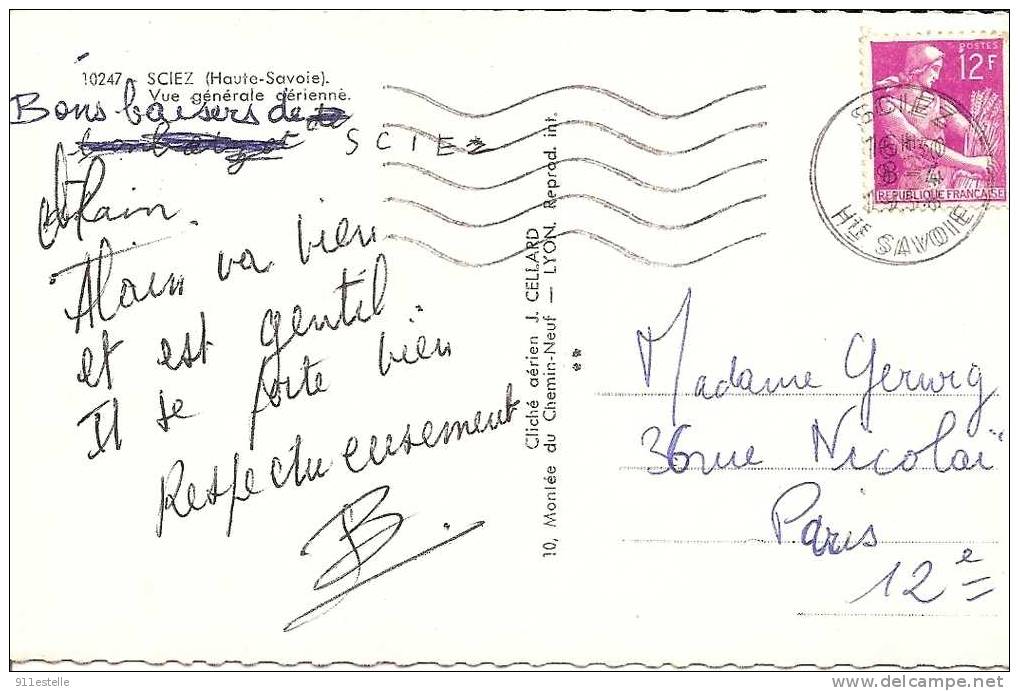 10247 SCIEZ (Haute-Savoie).
Vue générale aérienne.
Bons baisers de
SCIEZ
Alain.
Alain va bien
et est gentil.
Il se porte bien
Respectueusement
B
Cliché aérien J. CELLARD
10, Montée du Chemin-Neuf — LYON. Reprod. int.
**
POSTES
12F
REPUBLIQUE FRANÇAISE
SCIEZ
16H30
8-4
HTE SAVOIE
Madame Gerwig
36 rue Nicolaï
Paris
12e
911estelle
www.delcampe.net